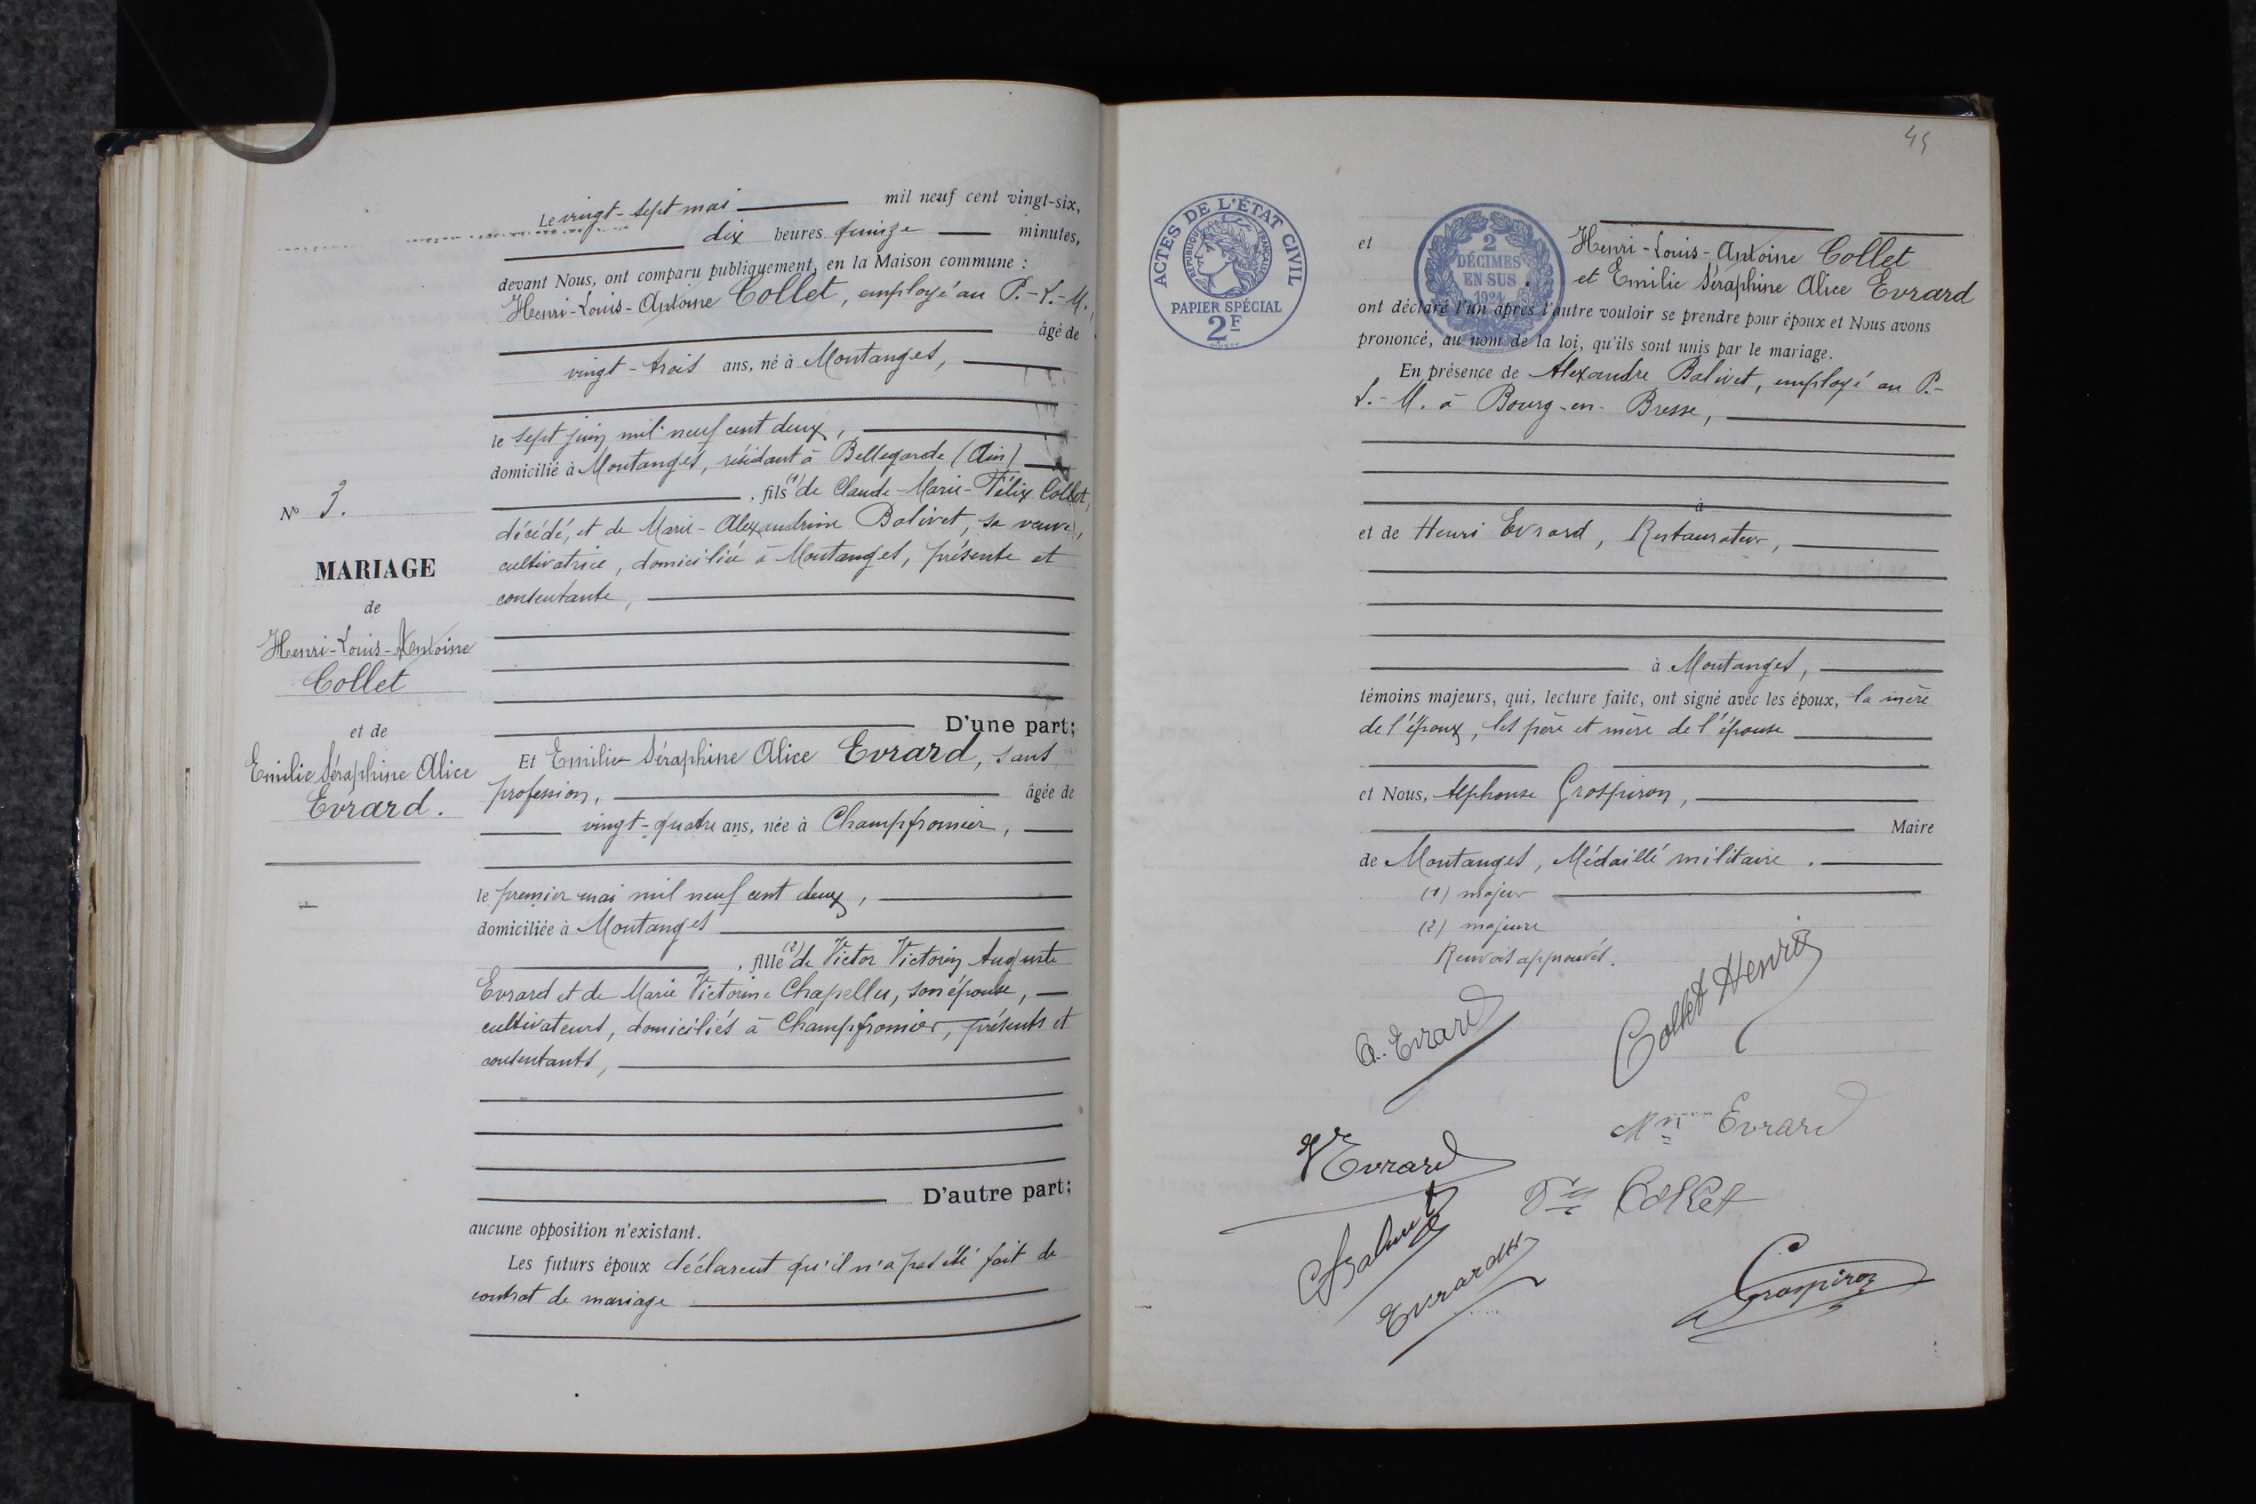 Le vingt-sept mai mil neuf cent vingt-six,
dix heures quinze minutes,
devant Nous, ont comparu publiquement, en la Maison commune :
Henri-Louis-Antoine Collet, employé au P.-L.-M.,
âgé de
vingt-trois ans, né à Montanges,
le sept juin mil neuf cent deux,
domicilié à Montanges, résidant à Bellegarde (Ain)
, fils (1) de Claude-Marie-Félix Collet,
décédé, et de Marie-Alexandrine Balivet, sa veuve,
cultivatrice, domiciliée à Montanges, présente et
consentante,
D'une part;
Et Emilie Séraphine Alice Evrard, sans
profession, âgée de
vingt-quatre ans, née à Champfromier,
le premier mai mil neuf cent deux,
domiciliée à Montanges
, fille (2) de Victor Victorin Auguste
Evrard et de Marie Victorine Chapellu, son épouse,
cultivateurs, domiciliés à Champfromier, présents et
consentants,
D'autre part;
aucune opposition n'existant.
Les futurs époux déclarent qu'il n'a pas été fait de
contrat de mariage
No 3.
MARIAGE
de
Henri-Louis-Antoine
Collet
et de
Emilie Séraphine Alice
Evrard.
45
ACTES DE L'ÉTAT CIVIL
RÉPUBLIQUE FRANÇAISE
PAPIER SPÉCIAL
2F
2
DÉCIMES
EN SUS
1924
et Henri-Louis-Antoine Collet
et Emilie Séraphine Alice Evrard
ont déclaré l'un après l'autre vouloir se prendre pour époux et Nous avons
prononcé, au nom de la loi, qu'ils sont unis par le mariage.
En présence de Alexandre Balivet, employé au P.-
L.-M. à Bourg-en-Bresse,
à
et de Henri Evrard, Restaurateur,
à Montanges,
témoins majeurs, qui, lecture faite, ont signé avec les époux, la mère
de l'époux, les père et mère de l'épouse
et Nous, Alphonse Grospiron,
Maire
de Montanges, Médaillé militaire.
(1) majeur
(2) majeure
Renvois approuvés.
A. Evrard
Collet Henri
Mme Evrard
V Evrard
Vve Collet
Balivet
Evrard
Grospiron